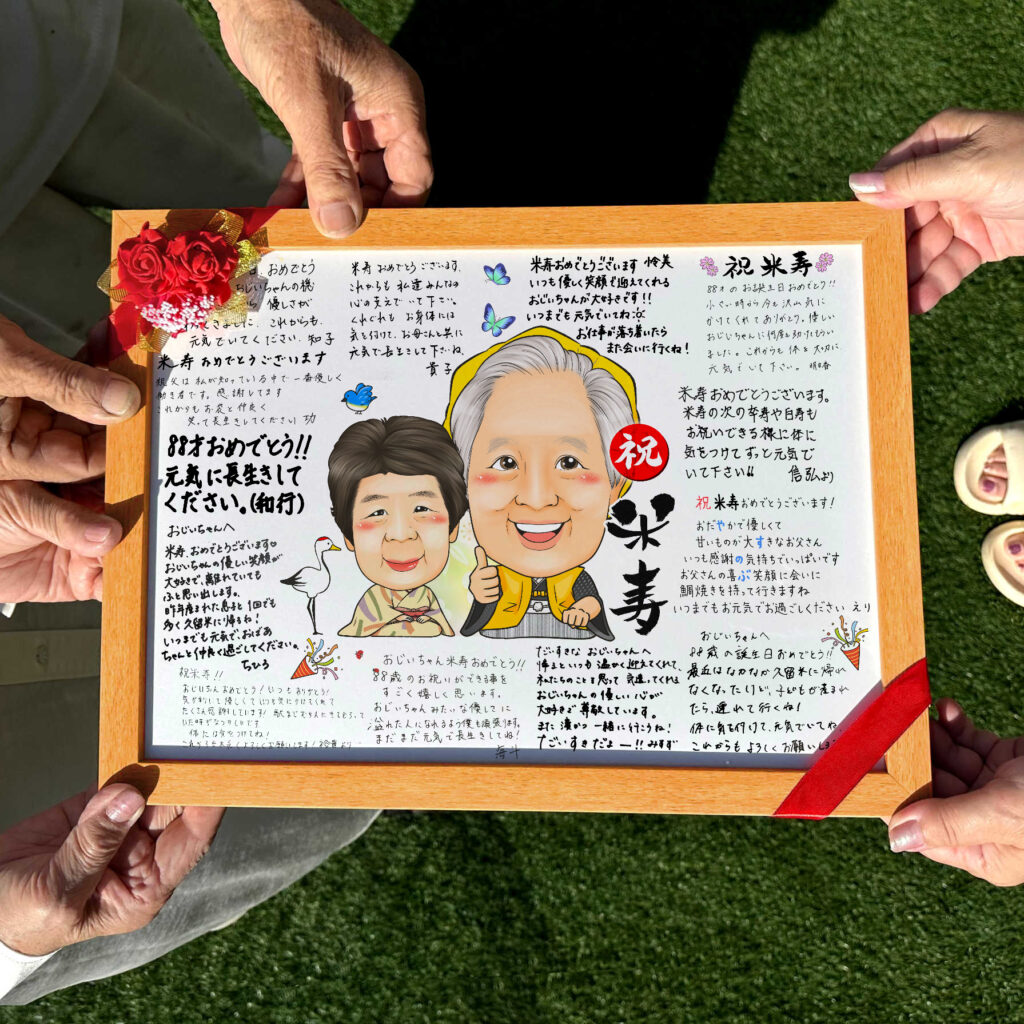 おめでとう
おじいちゃんの
優しさが
これからも、
元気でいてください。知子
米寿おめでとうございます
祖父は私が知っている中で一番優しく
働き者です。感謝してます
これからもお袋と仲良く
笑って長生きしてください 功
88才おめでとう!!
元気に長生きして
ください。(和行)
おじいちゃんへ
米寿、おめでとうございます
おじいちゃんの優しい笑顔が
大好きで、離れていても
ふと思い出します。
昨年産まれた息子と1回でも
多く久留米に帰るね!
いつまでも元気で、おばあ
ちゃんと仲良く過ごしてください。
ちひろ
祝米寿!!
おじいちゃんおめでとう!いつもありがとう!
たくさん感謝しています!
体には気をつけてね!
米寿おめでとうございます。
これからも私達みんなの
心の支えでいて下さい。
くれぐれもお身体には
気を付けて、お母さんと共に
元気で長生きして下さいね。
貴子
米寿おめでとうございます 怜美
いつも優しく笑顔で迎えてくれる
おじいちゃんが大好きです!!
いつまでも元気でいてね
お仕事が落ち着いたら
また会いに行くね!
祝米寿
88才のお誕生日おめでとう!!
小さい時から今も沢山気に
かけてくれてありがとう。優しい
おじいちゃんに何度も助けてもらい
ました。これからも体を大切に
元気でいて下さい。明日香
米寿おめでとうございます。
米寿の次の卒寿や白寿も
お祝いできる様に体に
気をつけてずっと元気で
いて下さい 信弘より
祝米寿おめでとうございます!
おだやかで優しくて
甘いものが大すきなお父さん
いつも感謝の気持ちでいっぱいです
お父さんの喜ぶ笑顔に会いに
鯛焼きを持って行きますね
いつまでもお元気でお過ごしください えり
祝
米寿
おじいちゃん米寿おめでとう!!
88歳のお祝いができる事を
すごく嬉しく思います。
おじいちゃんみたいな優しさに
溢れた人になれるよう僕も頑張ります。
まだまだ元気で長生きしてね!
海斗
だいすきな おじいちゃんへ
帰るといつも温かく迎えてくれて、
私たちのことを思って
おじいちゃんの優しい心が
大好きで尊敬しています。
また湊がと一緒に行こうね!
だいすきだよー!! みすず
おじいちゃんへ
88歳の誕生日おめでとう!!
最近はなかなか久留米に帰れ
なくなったけど、子どもが産まれ
たら、連れて行くね!
体に気を付けて、元気でいてね
これからもよろしくお願いします